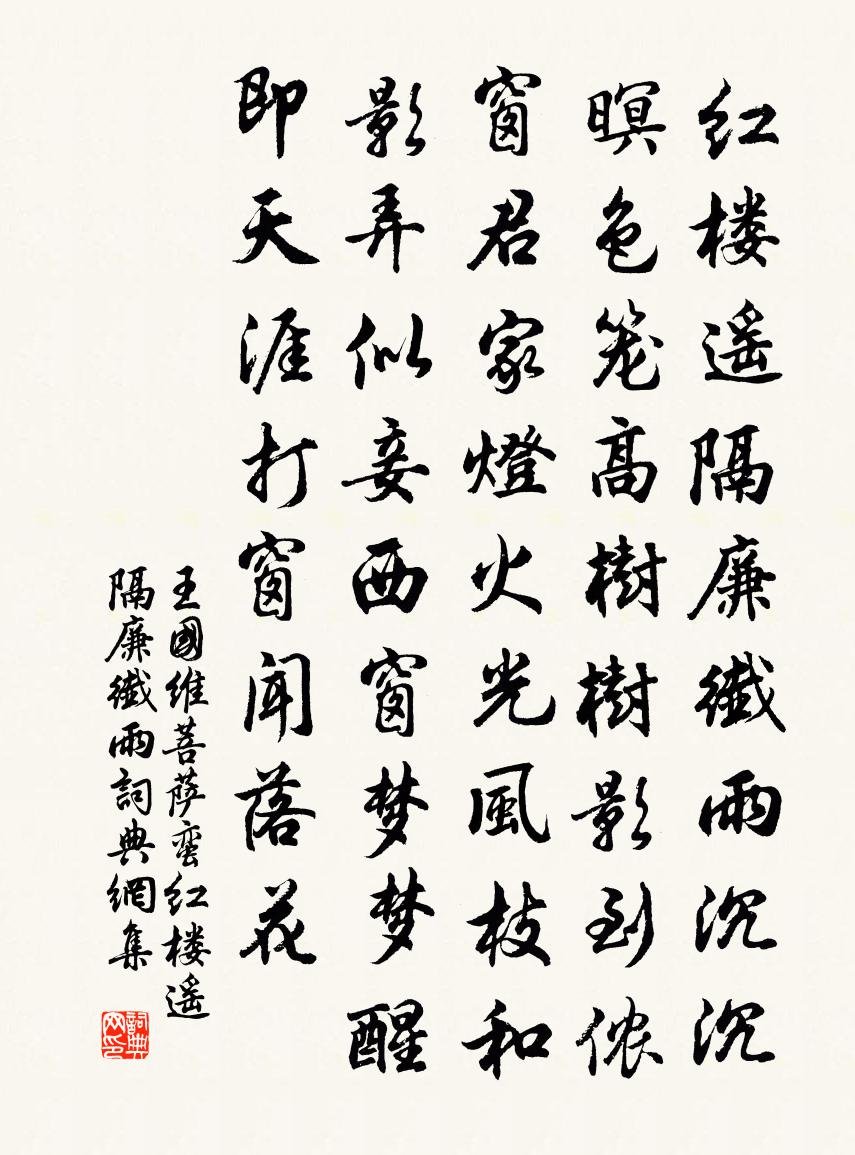 红楼遥隔廉纖雨沉沉
暝色笼高樹樹影到侬
窗君家燈火光風枝和
影弄似妾西窗梦梦醒
即天涯打窗闻落花
王國维菩萨蛮红楼遥
隔廉纖雨詞典網集
詞典网印